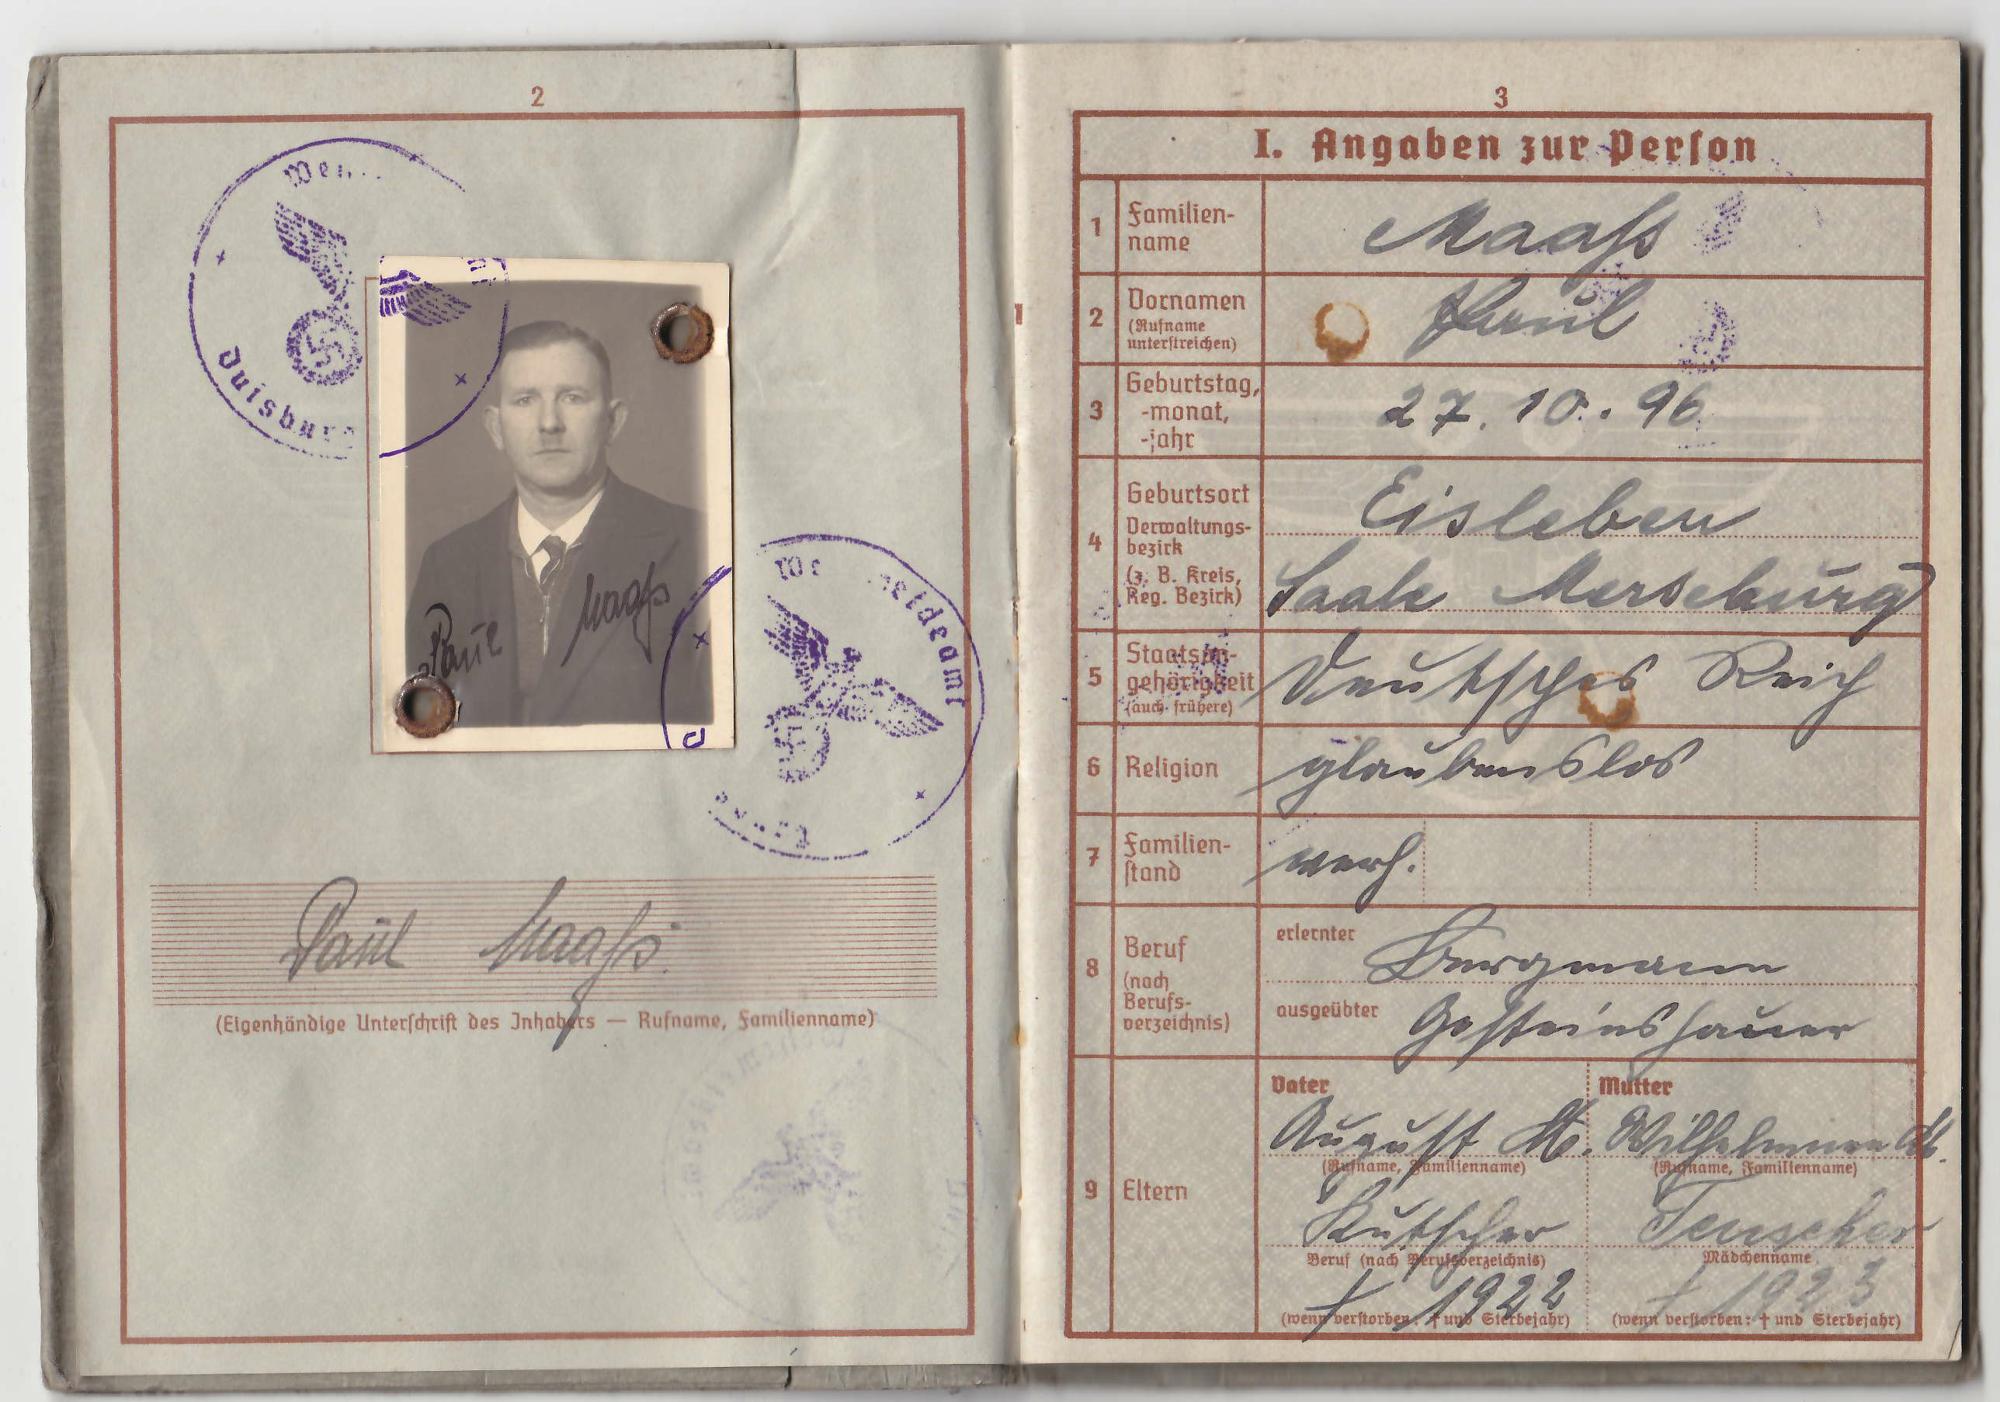 2
Duisburg
Paul Maaß
Paul Maaß
(Eigenhändige Unterschrift des Inhabers — Rufname, Familienname)
3
I. Angaben zur Person
1 Familien-
name
Maaß
2 Vornamen
(Rufname
unterstreichen)
Paul
3 Geburtstag,
-monat,
-jahr
27. 10. 96
4 Geburtsort
Verwaltungs-
bezirk
(z. B. Kreis,
Reg. Bezirk)
Eisleben
Saale Merseburg
5 Staatsan-
gehörigkeit
(auch frühere)
Deutsches Reich
6 Religion
glaubenslos
7 Familien-
stand
verh.
8 Beruf
(nach
Berufs-
verzeichnis)
erlernter Bergmann
ausgeübter Gesteinshauer
9 Eltern
Vater
August M.
(Rufname, Familienname)
Kutscher
Beruf (nach Berufsverzeichnis)
† 1922
(wenn verstorben: † und Sterbejahr)
Mutter
Wilhelmine M.
(Rufname, Familienname)
Teuscher
Mädchenname
† 1923
(wenn verstorben: † und Sterbejahr)